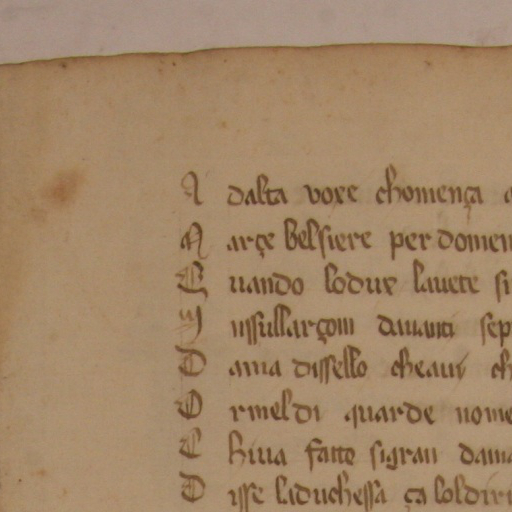 A dalta voxe chomença
M arçe bel siere per domen
Q uando lo dux lavete si
I nssullarçom davanti sep
D ama dissello che avi ch
O rmeldi quarde nome
C hiva fatto si gran dama
D isse la duchessa ça lo